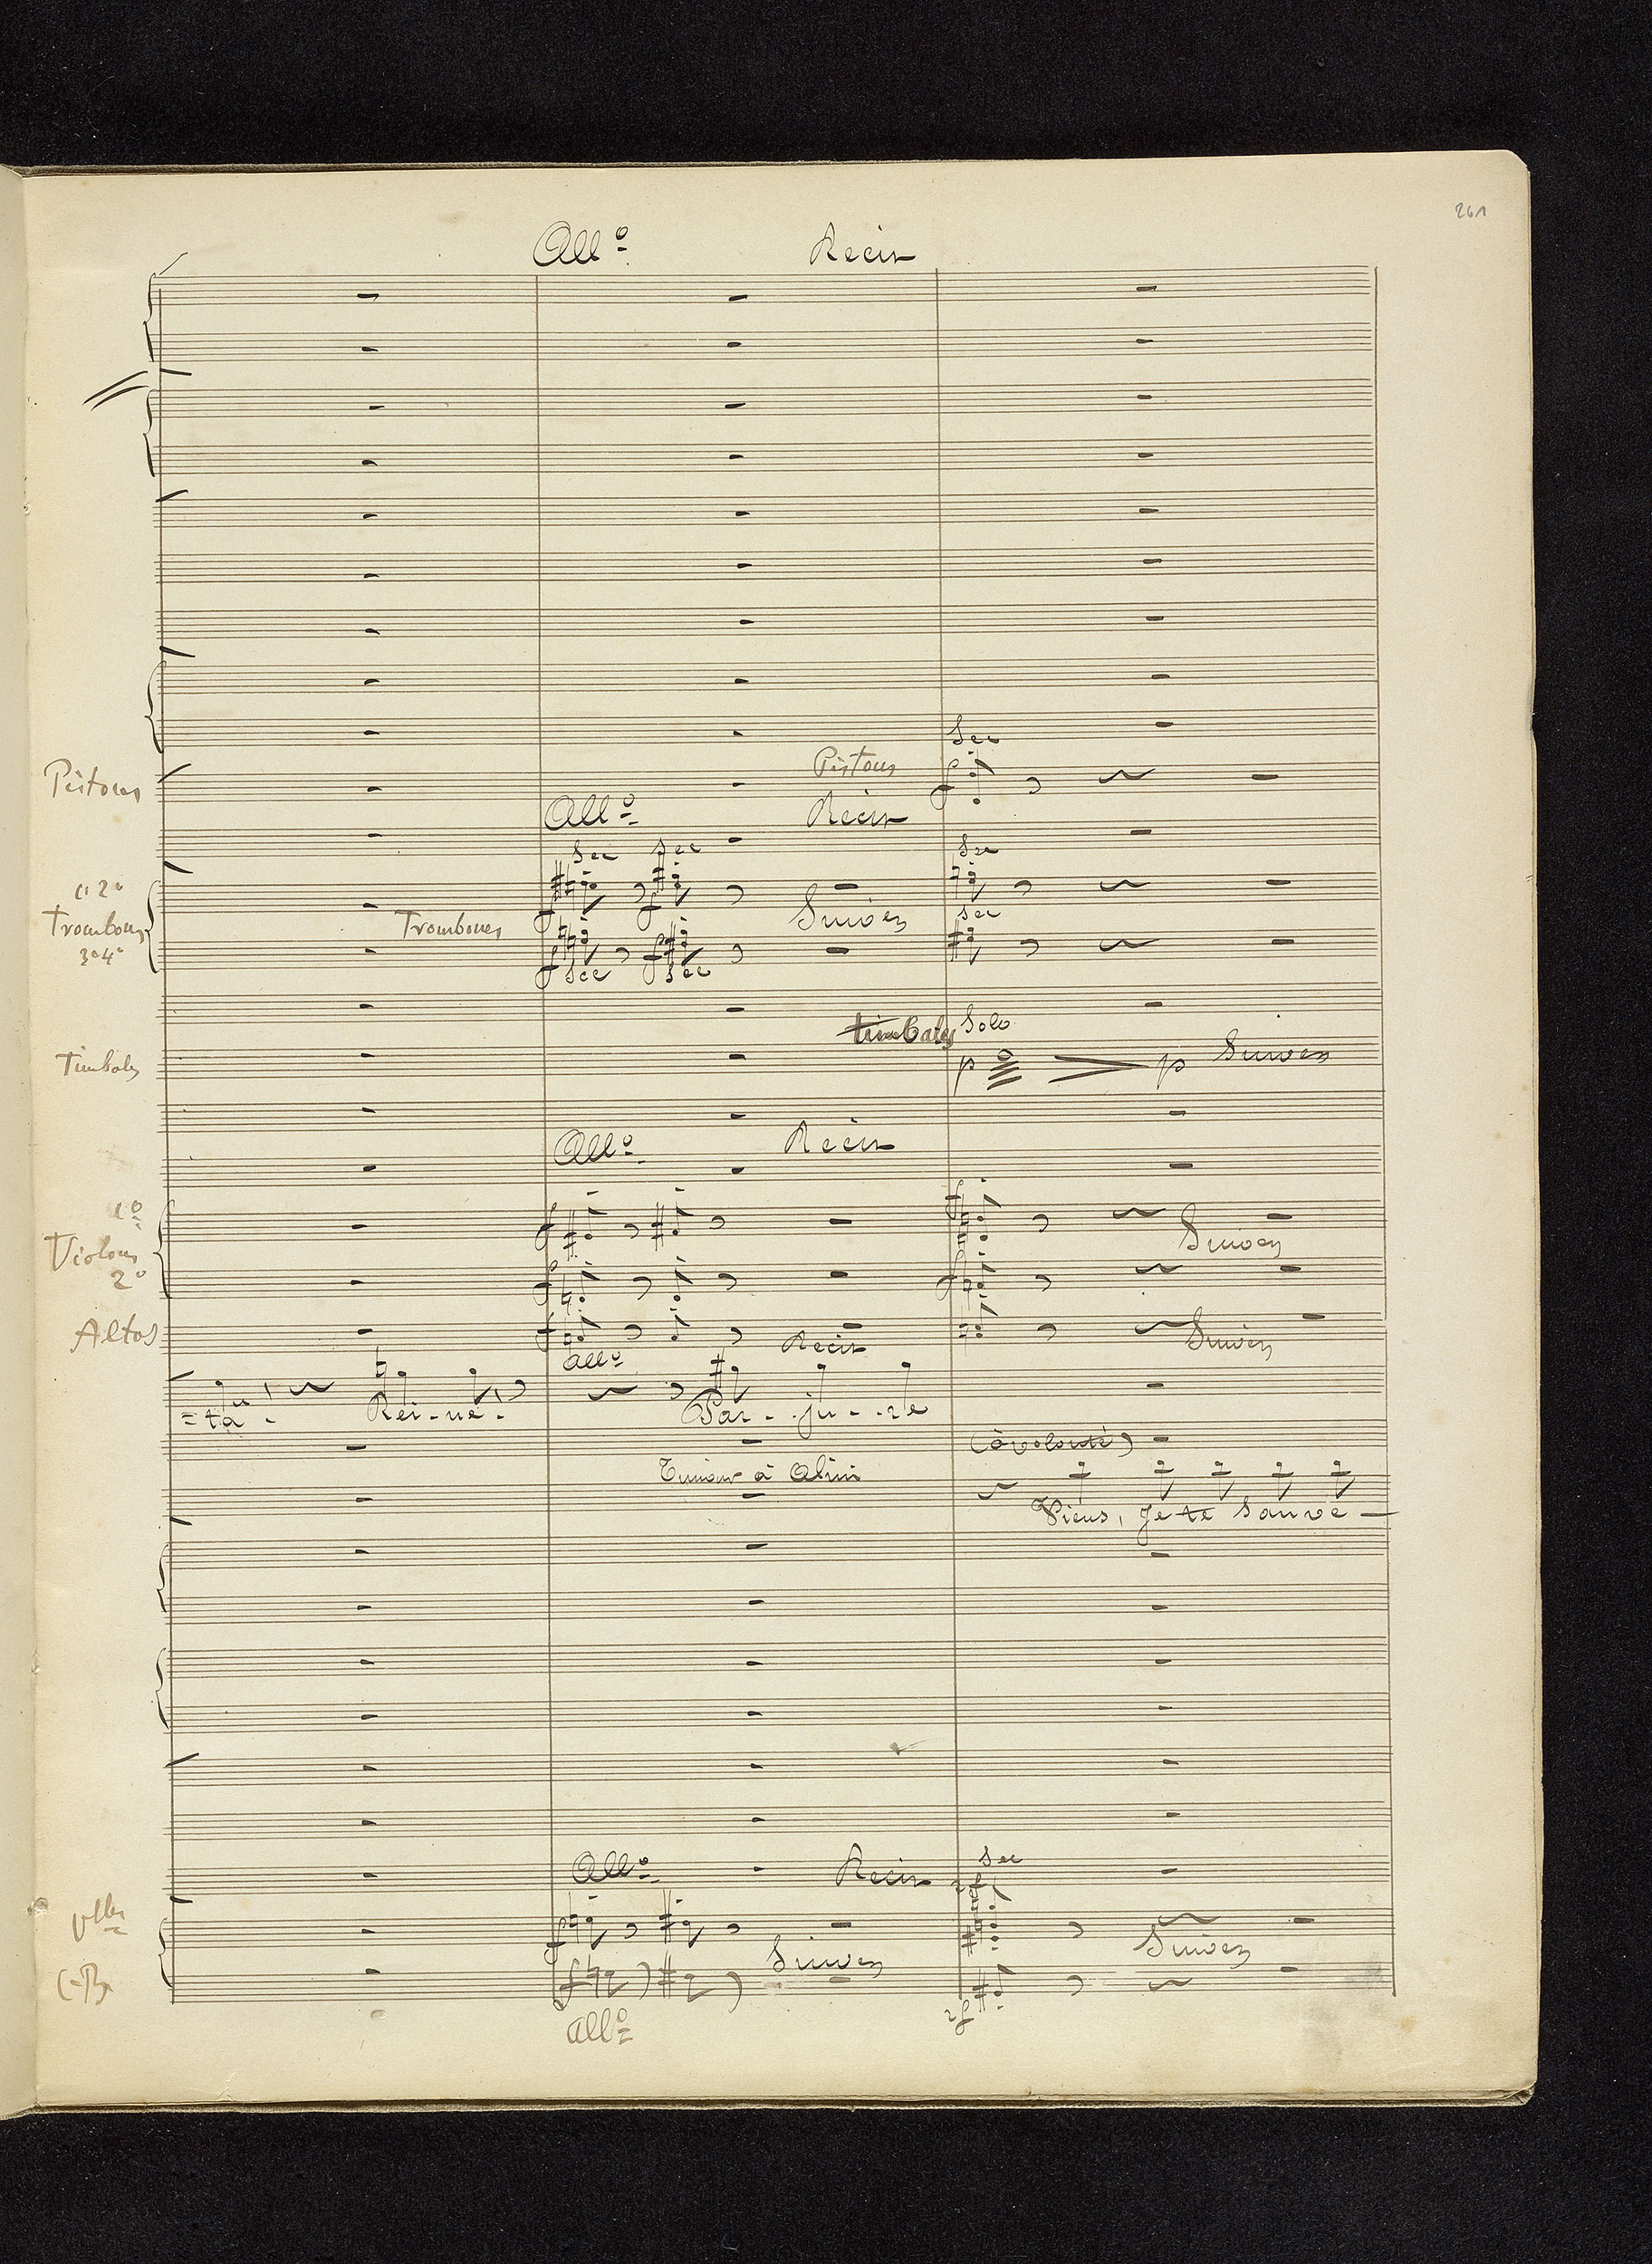 261
Allo Recit
Sec
Pistons Pistons
Allo Recit
Sec Sec Sec
1o 2o
f f
Trombones Trombones Suivez
3o 4o
sec
f f
sec sec
Timbales Solo
Timbales p p Suivez
Allo Recit
1o
f f
Violons Suivez
2o f f
Altos f Recit Suivez
Allo
= ta - Rei - ne - Par - ju - re
(à volonté)
à
Viens, Je te sauve —
Allo Recit sec
sf
Vlles f
Suivez Suivez
C-B f
sf
Allo